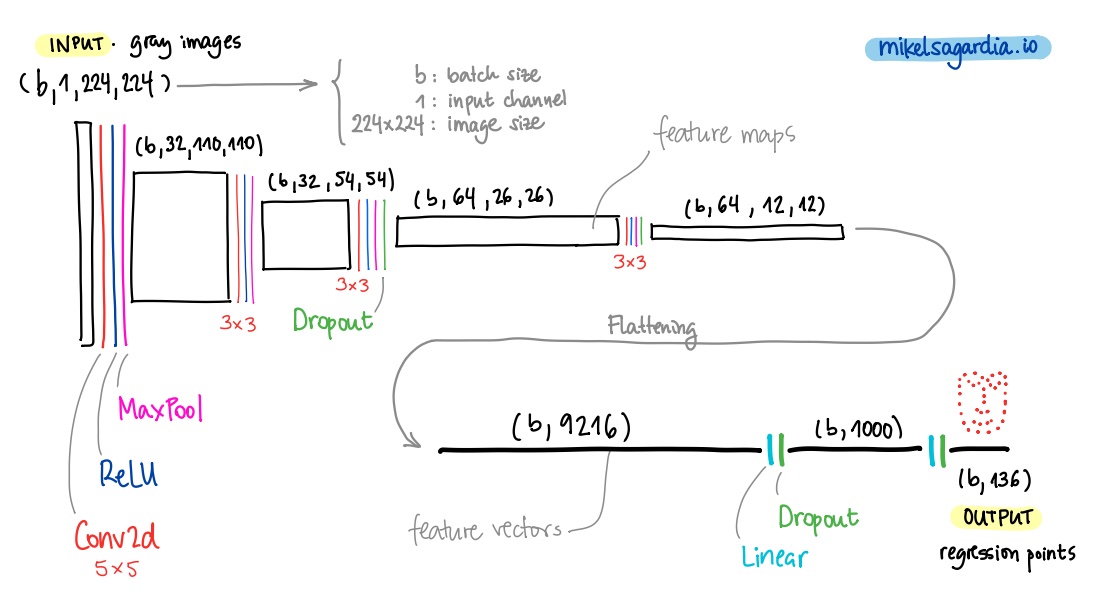 INPUT. gray images
mikelsagardia.io
(b,1,224,224)
b: batch size
1: input channel
224x224: image size
feature maps
(b,32,110,110)
(b,32,54,54)
(b,64,26,26)
(b,64,12,12)
3x3
3x3
3x3
Dropout
Flattening
MaxPool
ReLU
Conv2d
5x5
(b,9216)
(b,1000)
(b,136)
feature vectors
Dropout
Linear
OUTPUT
regression points